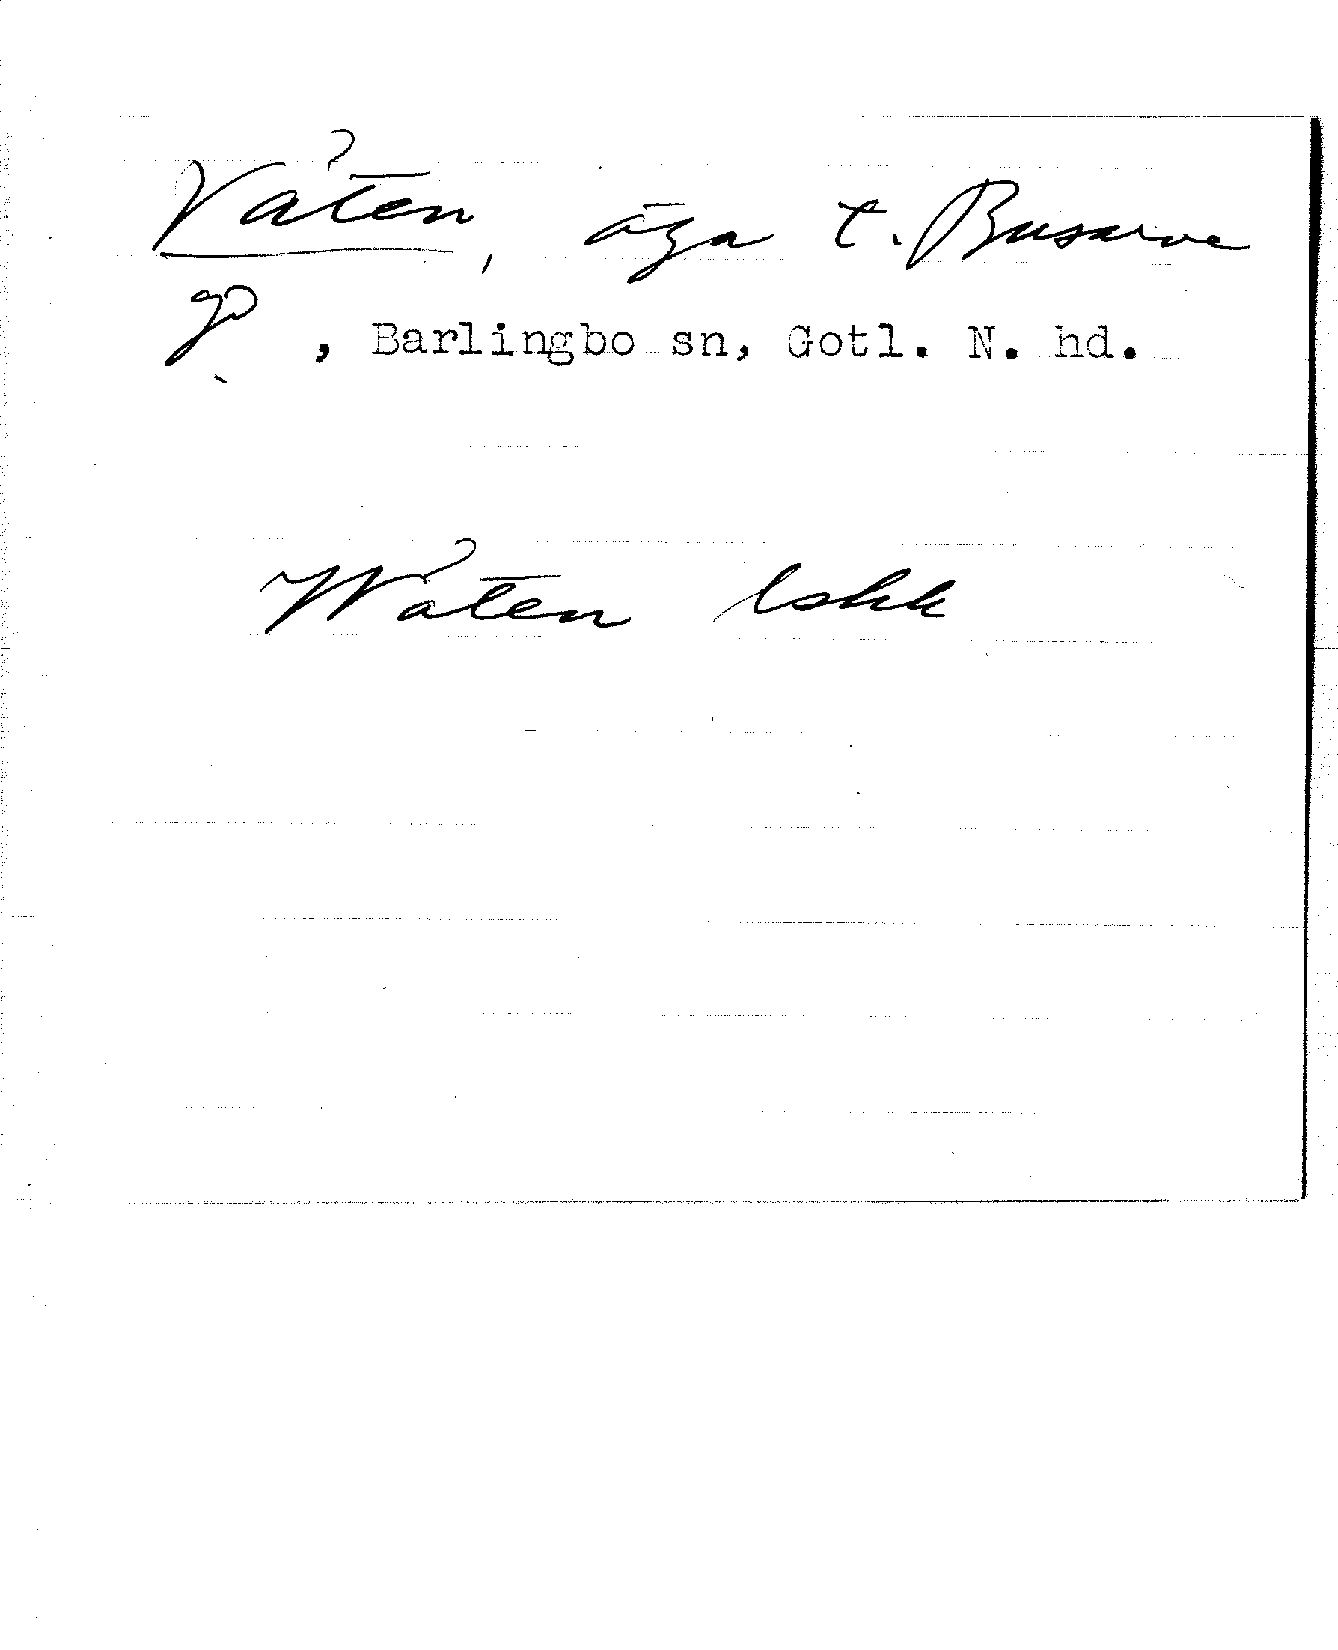 Våten, äga t. Busarve
gd, Barlingbo sn, Gotl. N. hd.
Wåten lskk